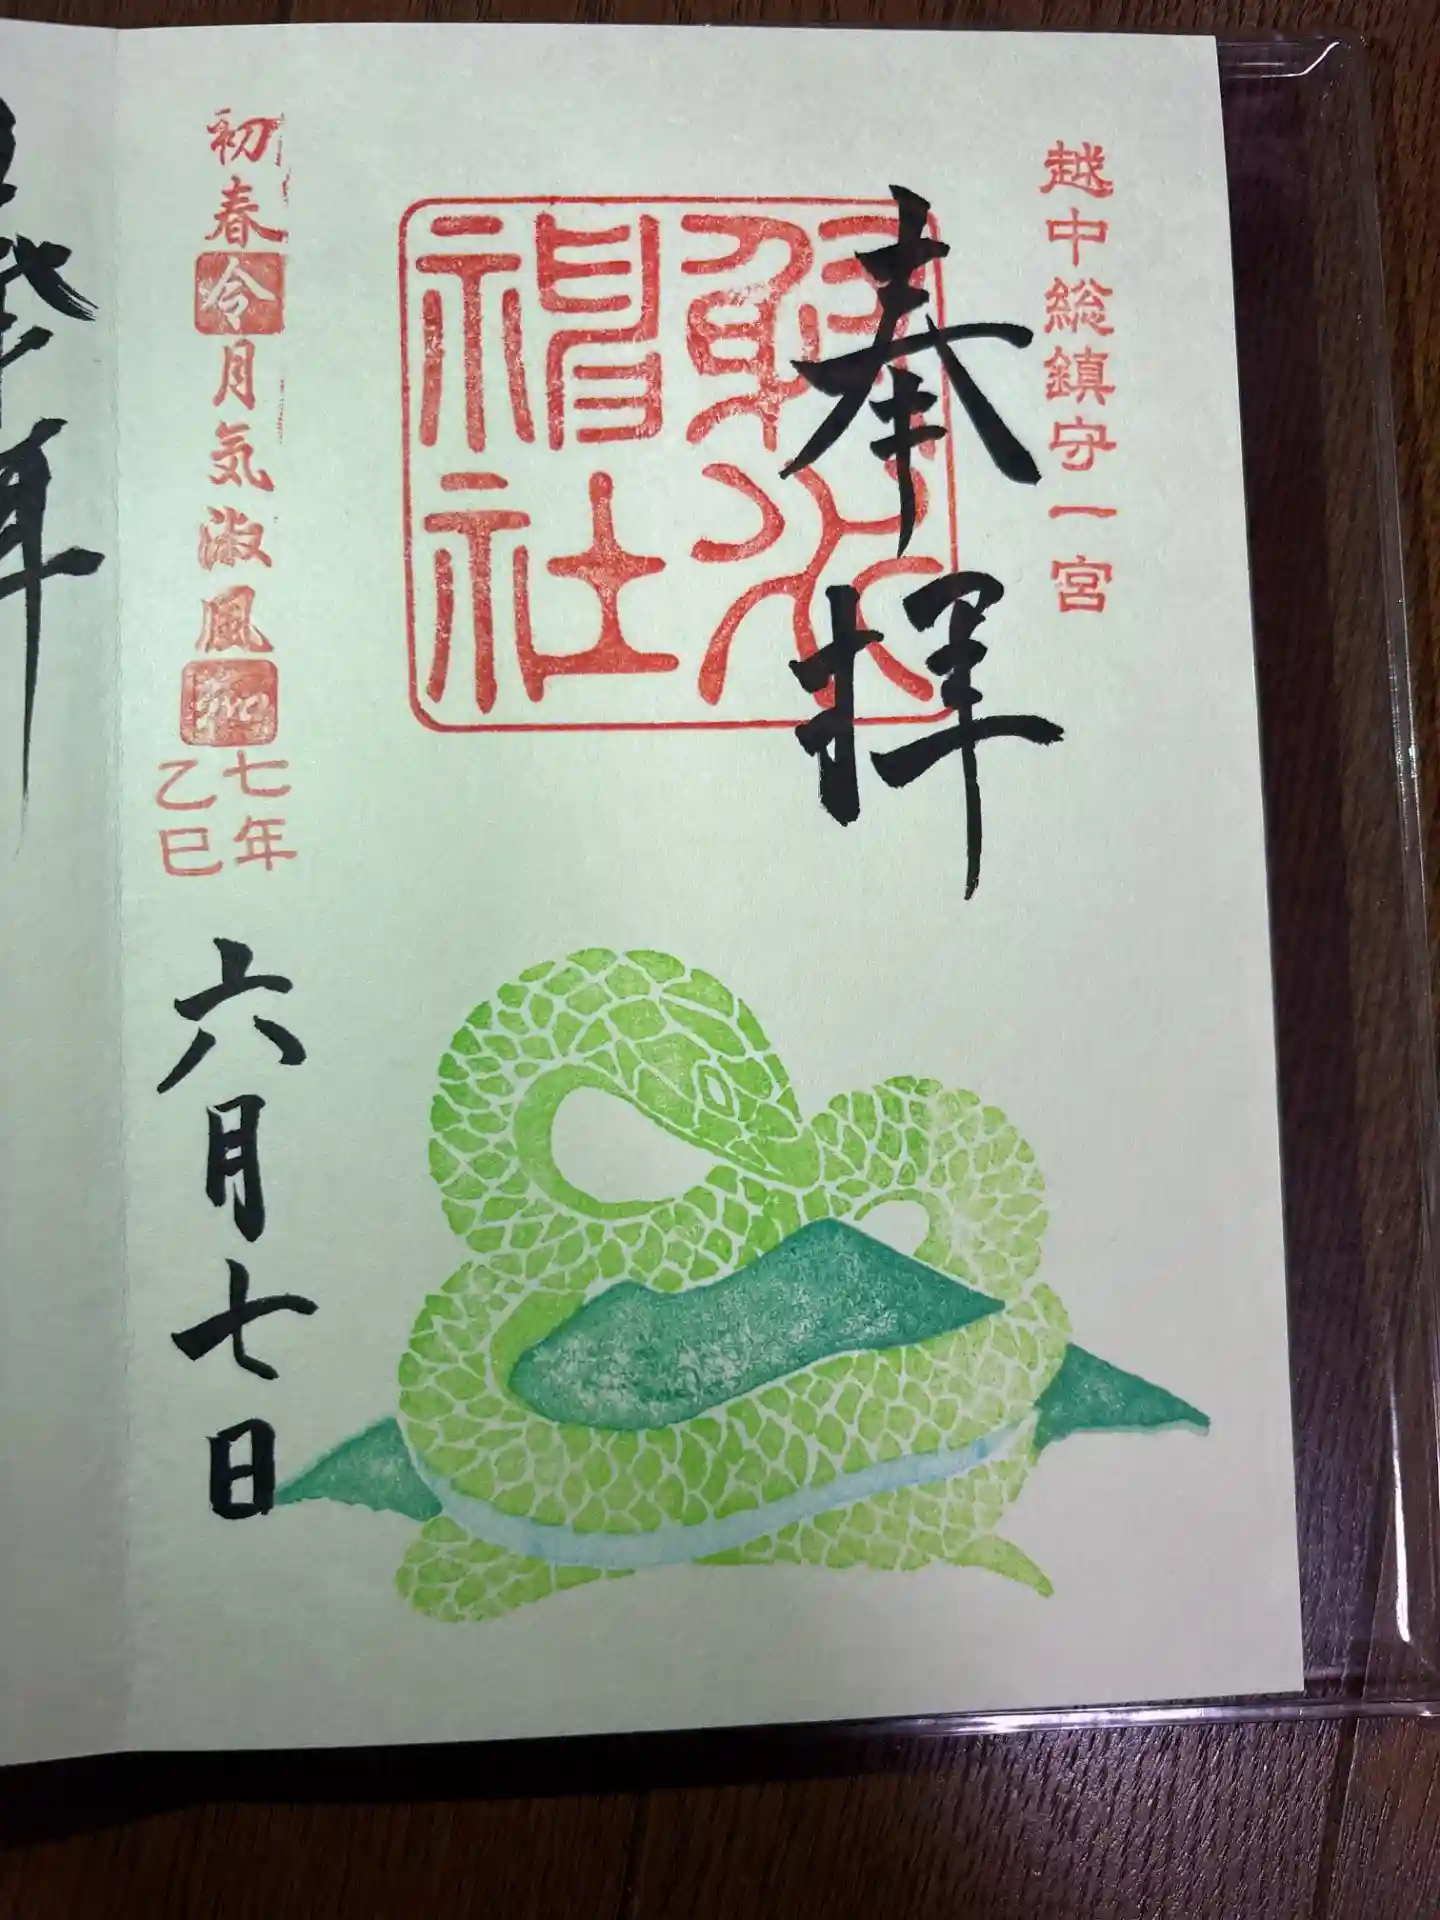 越中総鎮守一宮
奉拝
射水神社
初春令月気淑風和
七年
乙巳
六月七日
拝